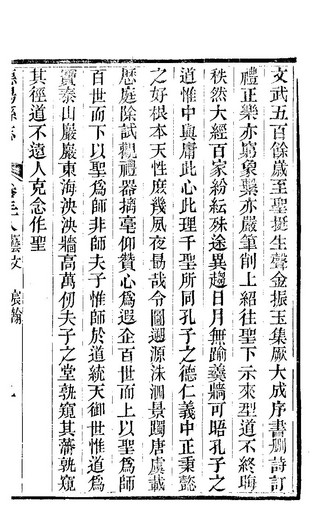 文武五百餘歲至聖挺生聲金振玉集厥大成序書刪詩訂
禮正樂亦窮象繫亦嚴筆削上紹往聖下示來型道不終晦
秩然大經百家紛紜殊途異趨日月無踰羹牆可昭孔子之
道惟中與庸此心此理千聖所同孔子之德仁義中正秉懿
之好根本天性庶幾夙夜勗哉令圖遡源洙泗景躅唐虞載
歷庭除試觀禮器摛毫仰贊心爲遐企百世而上以聖爲師
百世而下以聖爲師非師夫子惟師於道統天御世惟道爲
寶泰山巖巖東海泱泱牆高萬仞夫子之堂孰窺其藩孰窺
其徑道不遠人克念作聖
藝文 宸翰 九